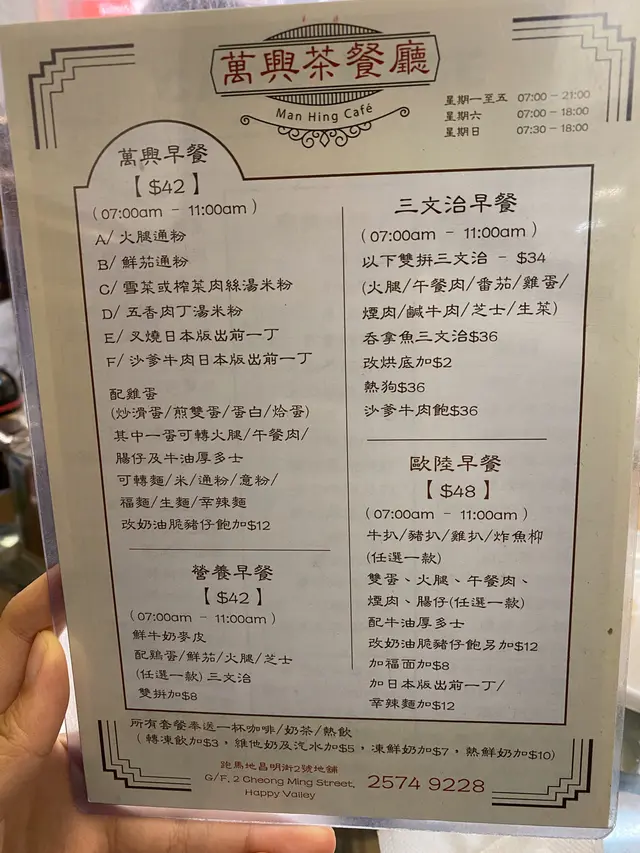 萬興茶餐廳
Man Hing Café
星期一至五 07:00 - 21:00
星期六 07:00 - 18:00
星期日 07:30 - 18:00
萬興早餐
【 $42 】
( 07:00am - 11:00am )
A/ 火腿通粉
B/ 鮮茄通粉
C/ 雪菜或榨菜肉絲湯米粉
D/ 五香肉丁湯米粉
E/ 叉燒日本版出前一丁
F/ 沙爹牛肉日本版出前一丁
配雞蛋
(炒滑蛋/煎雙蛋/蛋白/烚蛋)
其中一蛋可轉火腿/午餐肉/
腸仔及牛油厚多士
可轉麵/米/通粉/意粉/
福麵/生麵/辛辣麵
改奶油脆豬仔飽加$12
營養早餐
【 $42 】
( 07:00am - 11:00am )
鮮牛奶麥皮
配鷄蛋/鮮茄/火腿/芝士
(任選一款) 三文治
雙拼加$8
三文治早餐
( 07:00am - 11:00am )
以下雙拼三文治 - $34
(火腿/午餐肉/番茄/雞蛋/
煙肉/鹹牛肉/芝士/生菜)
吞拿魚三文治$36
改烘底加$2
熱狗$36
沙爹牛肉飽$36
歐陸早餐
【 $48 】
( 07:00am - 11:00am )
牛扒/豬扒/雞扒/炸魚柳
(任選一款)
雙蛋、火腿、午餐肉、
煙肉、腸仔(任選一款)
配牛油厚多士
改奶油脆豬仔飽另加$12
加福面加$8
加日本版出前一丁/
辛辣麵加$12
所有套餐奉送一杯咖啡/奶茶/熱飲
( 轉凍飲加$3，維他奶及汽水加$5，凍鮮奶加$7，熱鮮奶加$10)
跑馬地昌明街2號地舖
G/F, 2 Cheong Ming Street,
Happy Valley
2574 9228